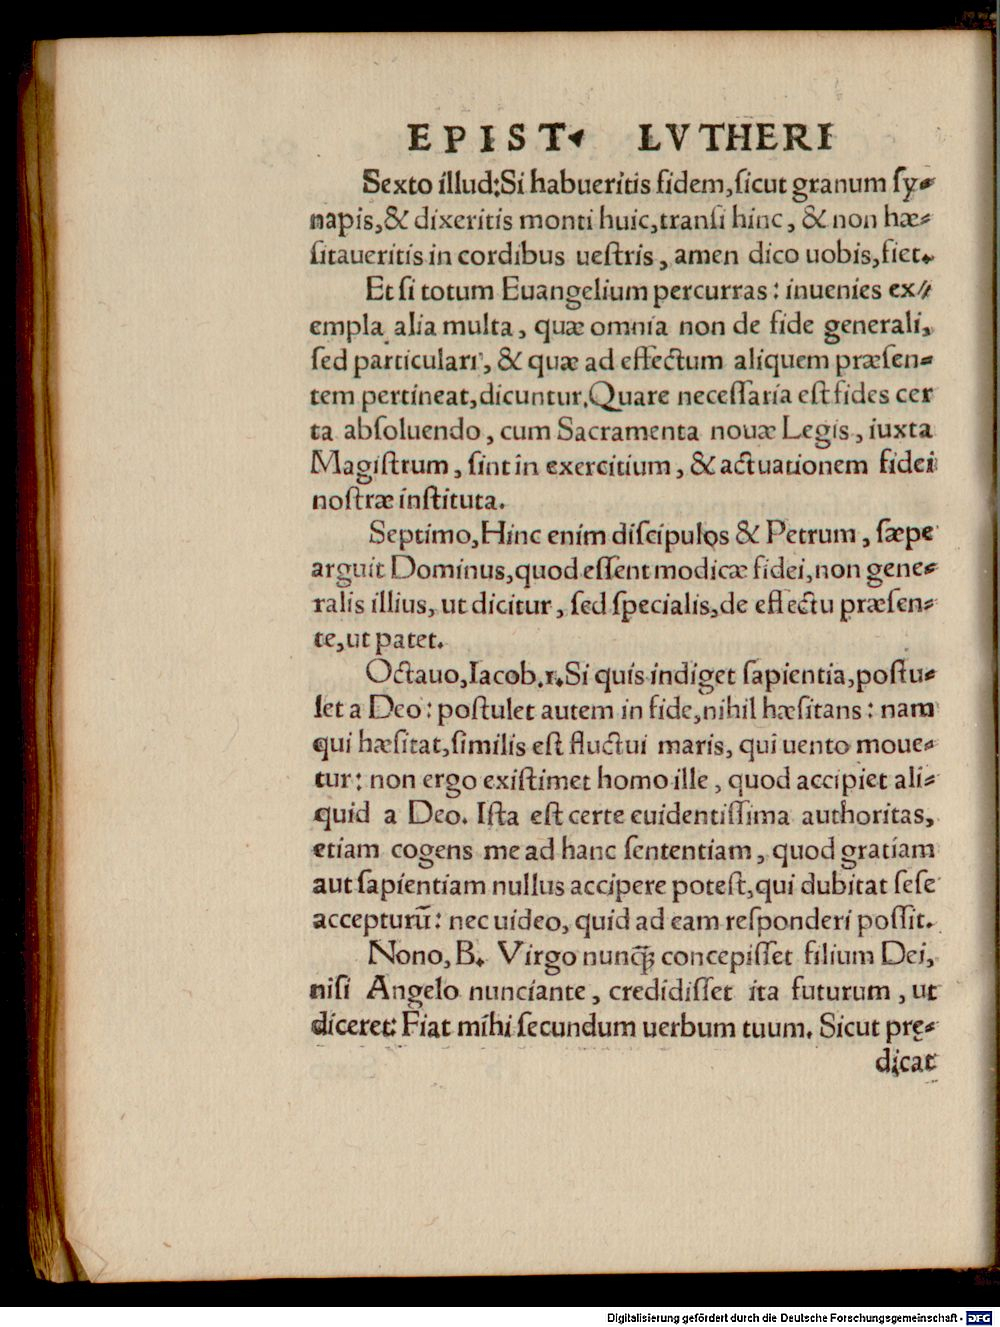 EPIST. LVTHERI
Sexto illud: Si habueritis fidem, ſicut granum ſy-
napis, & dixeritis monti huic, tranſi hinc, & non hæ-
ſitaueritis in cordibus ueſtris, amen dico uobis, fiet.
Et ſi totum Euangelium percurras: inuenies ex-
empla alia multa, quæ omnia non de fide generali,
ſed particulari, & quæ ad effectum aliquem præſen-
tem pertineat, dicuntur. Quare neceſſaria eſt fides cer
ta abſoluendo, cum Sacramenta nouæ Legis, iuxta
Magiſtrum, ſint in exercitium, & actuationem fidei
noſtræ inſtituta.
Septimo, Hinc enim diſcipulos & Petrum, ſæpe
arguit Dominus, quod eſſent modicæ fidei, non gene-
ralis illius, ut dicitur, ſed ſpecialis, de effectu præſen-
te, ut patet.
Octauo, Iacob. 1. Si quis indiget ſapientia, poſtu-
let a Deo: poſtulet autem in fide, nihil hæſitans: nam
qui hæſitat, ſimilis eſt fluctui maris, qui uento moue-
tur: non ergo exiſtimet homo ille, quod accipiet ali-
quid a Deo. Iſta eſt certe euidentiſſima authoritas,
etiam cogens me ad hanc ſententiam, quod gratiam
aut ſapientiam nullus accipere poteſt, qui dubitat ſeſe
accepturū: nec uideo, quid ad eam reſponderi poſſit.
Nono, B. Virgo nunq̃; concepiſſet filium Dei,
niſi Angelo nunciante, credidiſſet ita futurum, ut
diceret: Fiat mihi ſecundum uerbum tuum. Sicut prę-
dicat
Digitalisierung gefördert durch die Deutsche Forschungsgemeinschaft - DFG